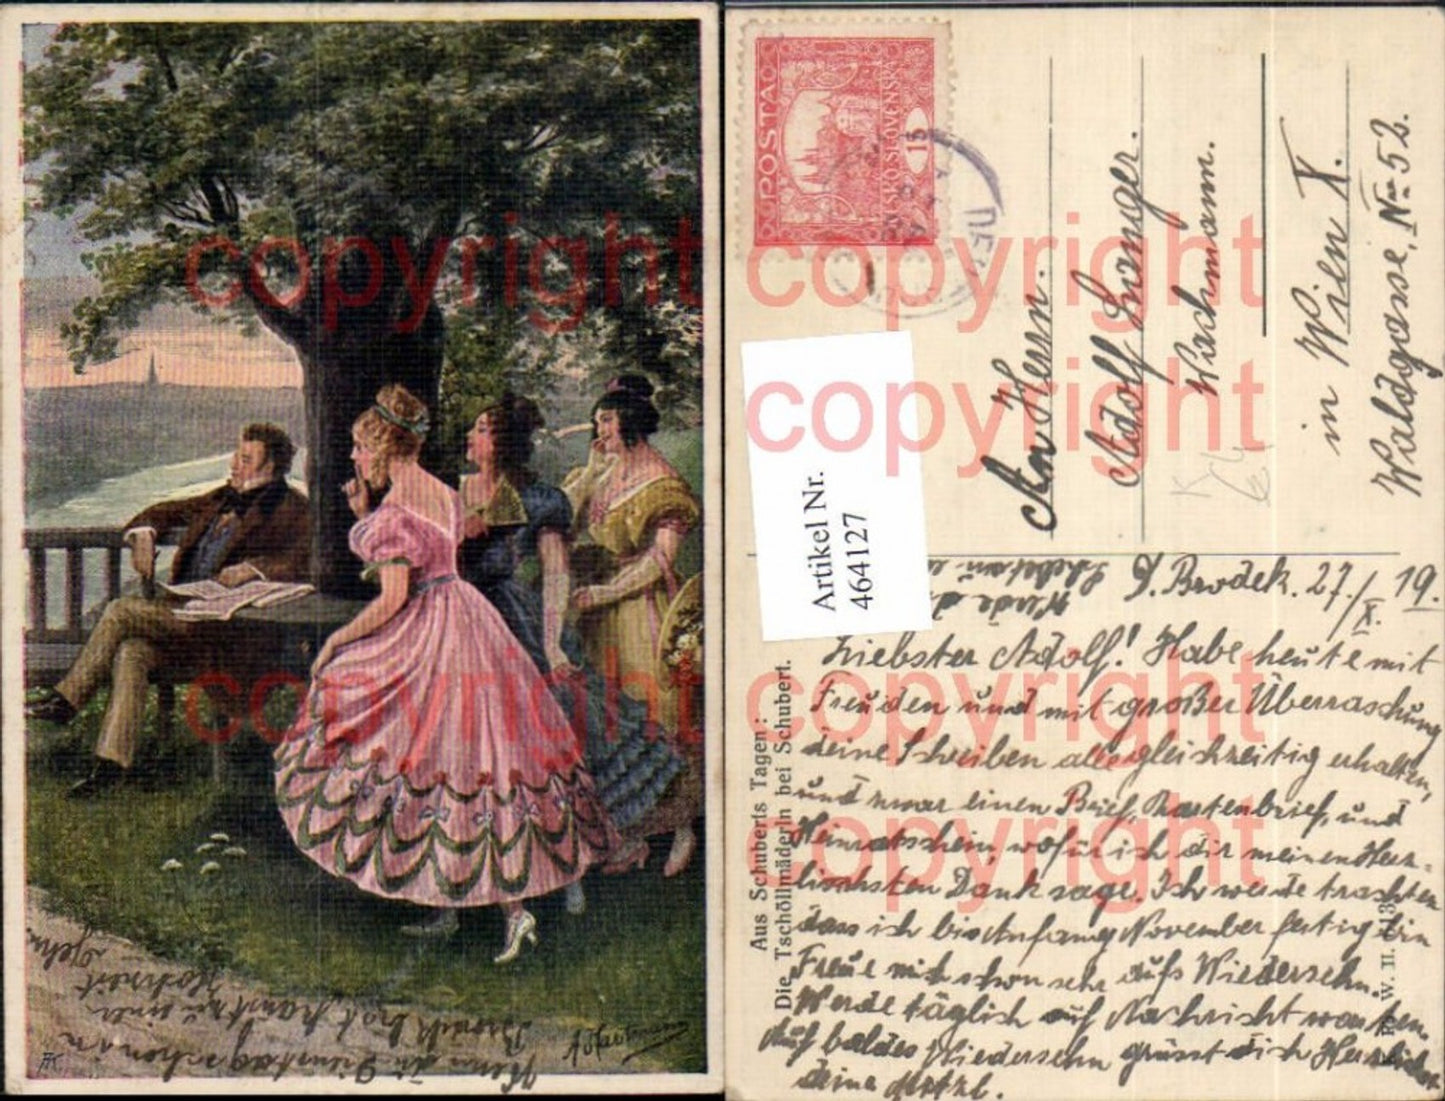 POSTA
ČESKOSLOVENSKÁ
15
Artikel Nr.
464127
An Herrn.
Adolf Langer.
Wachmann.
in Wien X.
Waldgasse. No 52.
D. Brodek. 27./X. 19.
Liebster Adolf! Habe heute mit
Freuden und mit großer Überraschung
deine Schreiben alle gleichzeitig erhalten,
und zwar einen Brief, Kartenbrief, und
Heimratschein, wofür ich dir meinen Herz-
lichsten Dank sage. Ich werde trachten
dass ich bis Anfang November fertig bin
Freue mich schon sehr aufs Wiedersehn.
Werde täglich auf Nachricht warten.
Auf baldes Wiedersehn grüsst dich Herzlich
deine
Aus Schuberts Tagen:
Die Tschöllmäderln bei Schubert.
W. II.
Dienstag schon in
Hochzeit
gehn.
copyright
copyright
copyright
copyright
copyright
copyright
copyright
copyright